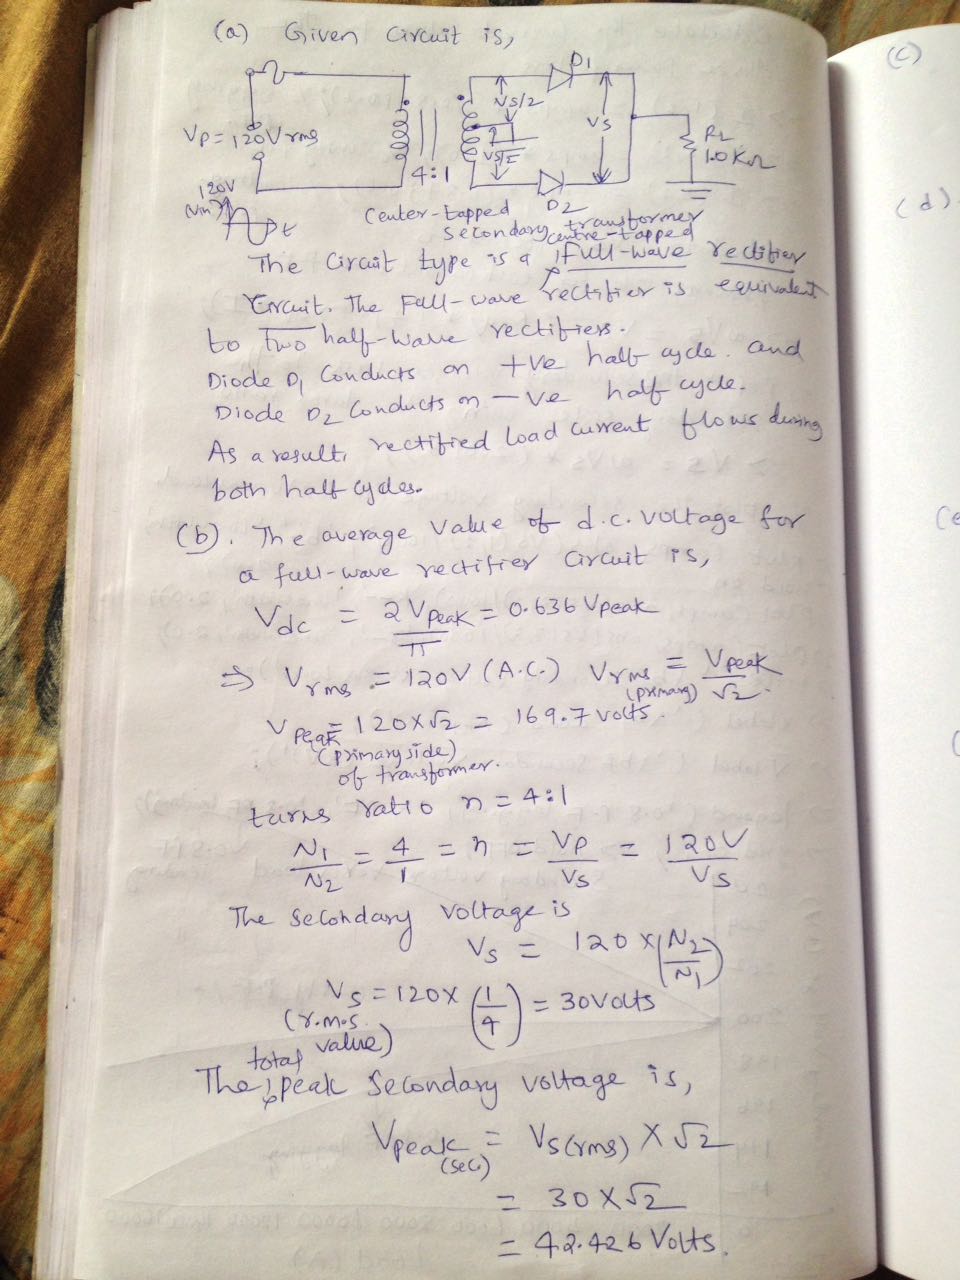 (a) Given Circuit is,
D1
Vs/2
VP = 120V rms
Vs
RL
1.0 KΩ
Vs/2
4:1
120V
(Vin)
t
D2
Center-tapped
secondary transformer
centre-tapped
The Circuit type is a full-wave rectifier
Circuit. The Full-wave rectifier is equivalent
to Two half-wave rectifiers.
Diode D1 Conducts on +ve half cycle. and
Diode D2 Conducts on -ve half cycle.
As a result, rectified load current flows during
both half cycles.
(b). The average value of d.c. voltage for
a full-wave rectifier circuit is,
Vdc = 2Vpeak/π = 0.636 Vpeak
⇒ Vrms = 120V (A.C.) Vrms = Vpeak/√2.
(primary)
Vpeak = 120×√2 = 169.7 volts.
(primary side)
of transformer.
turns ratio n = 4:1
N1/N2 = 4/1 = n = VP/VS = 120V/VS
The secondary voltage is
Vs = 120 × (N2/N1)
Vs = 120× (1/4) = 30Volts
(r.m.s.
total value)
The peak Secondary voltage is,
Vpeak = Vs(rms) × √2
(sec)
= 30×√2
= 42.426 Volts.
(c)
(d).